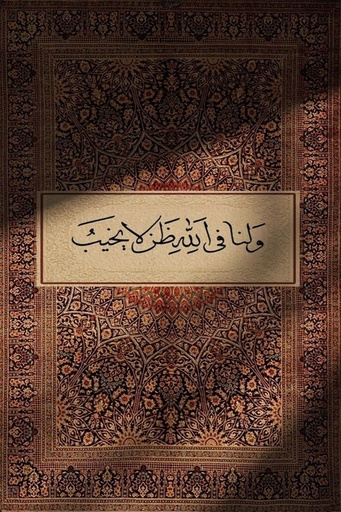 ولنا في اللهِ ظن لا يخيبُ